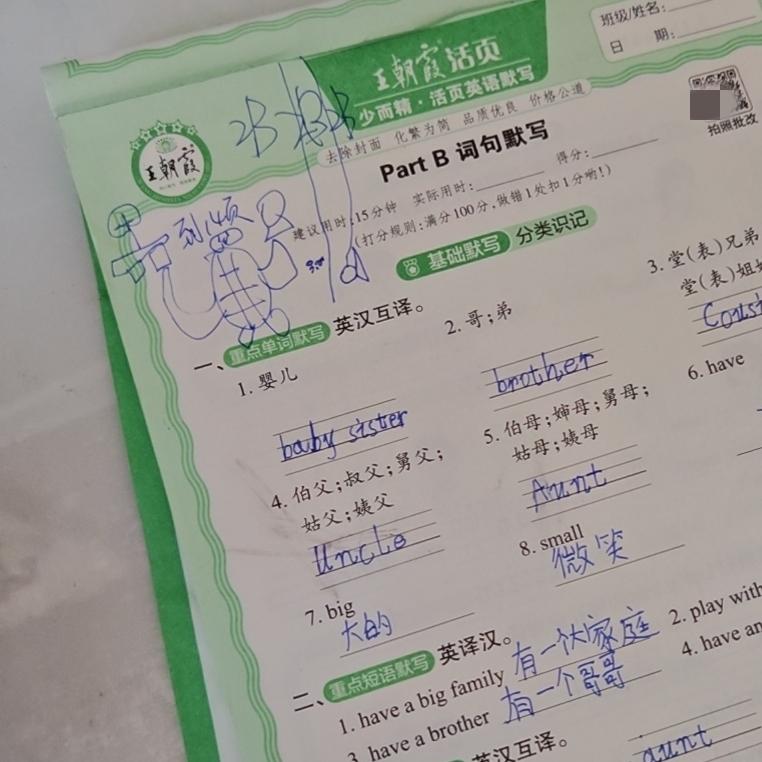 班级/姓名:
日 期:
王朝霞活页
少而精·活页英语默写
去除封面 化繁为简 品质优良 价格公道
拍照批改
王朝霞
Part B 词句默写
建议用时:15分钟 实际用时: 得分:
(打分规则:满分100分,做错1处扣1分哟!)
基础默写 分类识记
一、重点单词默写 英汉互译。
1. 婴儿
2. 哥;弟
3. 堂(表)兄弟
堂(表)姐
baby sister
brother
Cous
4. 伯父;叔父;舅父;
姑父;姨父
5. 伯母;婶母;舅母;
姑母;姨母
6. have
Uncle
Aunt
7. big
8. small
大的
微笑
二、重点短语默写 英译汉。
1. have a big family 有一个大家庭
2. play with
3. have a brother 有一个哥哥
4. have an
英汉互译。
aunt